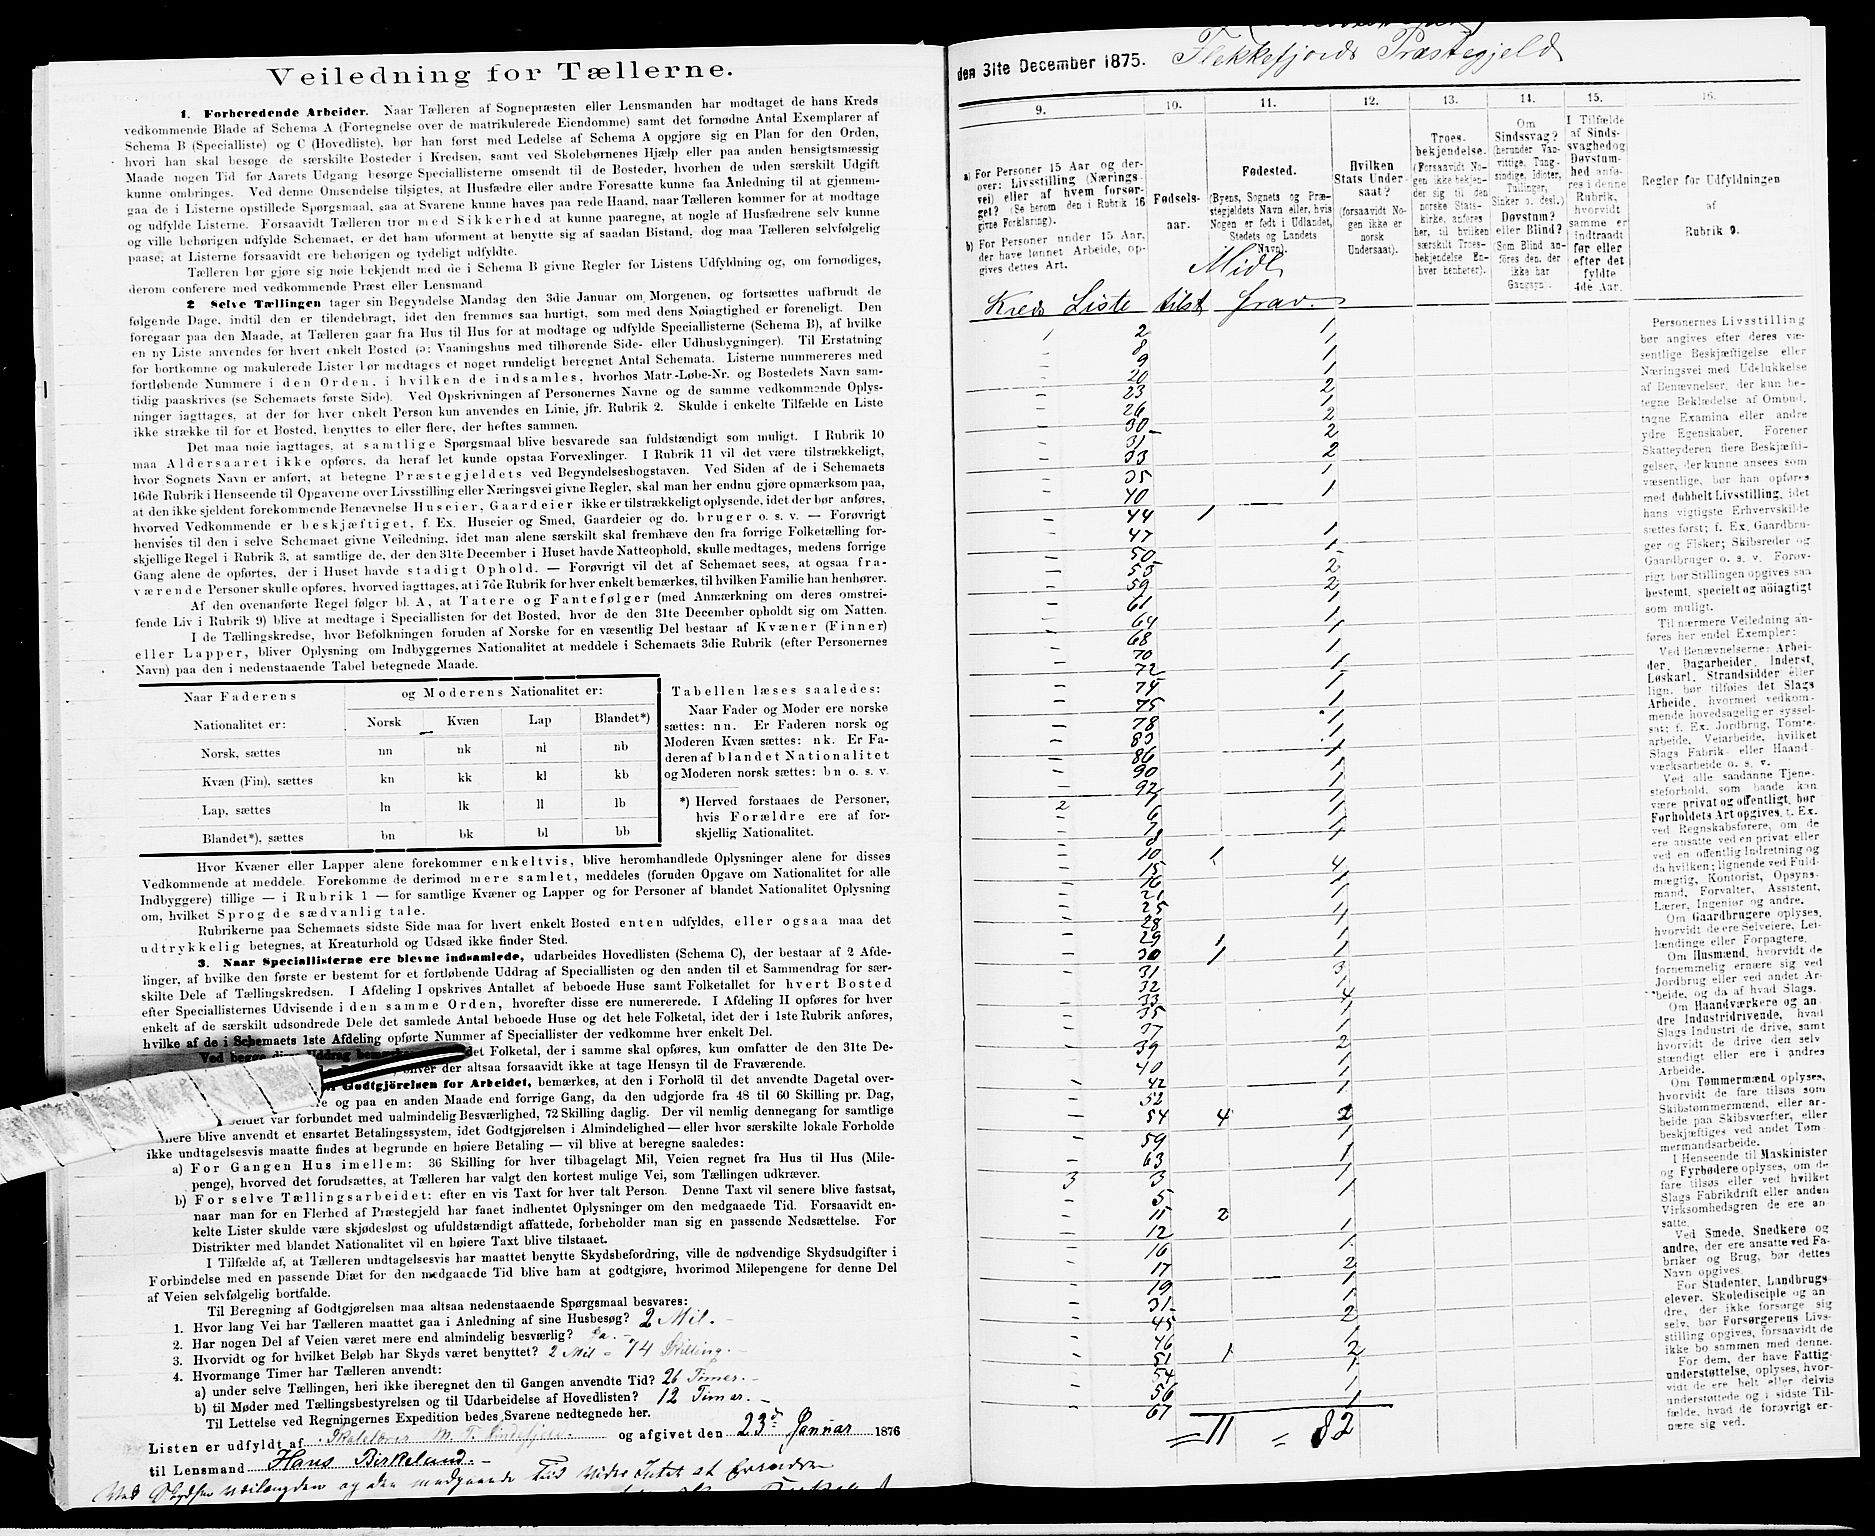 Veiledning for Tællerne.
1. Forberedende Arbeider. Naar Tælleren af Sognepræsten eller Lensmanden har modtaget de hans Kreds
vedkommende Blade af Schema A (Fortegnelse over de matrikulerede Eiendomme) samt det fornødne Antal Exemplarer af
Schema B (Specialliste) og C (Hovedliste), bør han først med Ledelse af Schema A opgjøre sig en Plan for den Orden,
hvori han skal besøge de særskilte Bosteder i Kredsen, samt ved Skolebørnenes Hjælp eller paa anden hensigtsmæssig
Maade nogen Tid før Aarets Udgang besørge Speciallisterne omsendt til de Bosteder, hvorhen de uden særskilt Udgift
kunne ombringes. Ved denne Omsendelse tilsigtes, at Husfædre eller andre Foresatte kunne faa Anledning til at gjennem-
gaa de i Listerne opstillede Spørgsmaal, saa at Svarene kunne haves paa rede Haand, naar Tælleren kommer for at modtage
og udfylde Listerne. Forsaavidt Tælleren tror med Sikkerhed at kunne paaregne, at nogle af Husfædrene selv kunne
og ville behørigen udfylde Schemaet, er det ham uforment at benytte sig af saadan Bistand, dog maa Tælleren selvfølgelig
paase, at Listerne forsaavidt ere behørigen og tydeligt udfyldte.
Tælleren bør gjøre sig nøie bekjendt med de i Schema B givne Regler for Listens Udfyldning og, om fornødiges,
derom conferere med vedkommende Præst eller Lensmand
2 Selve Tællingen tager sin Begyndelse Mandag den 3die Januar om Morgenen, og fortsættes uafbrudt de
følgende Dage, indtil den er tilendebragt, idet den fremmes saa hurtigt, som med dens Nøiagtighed er foreneligt. Den
foregaar paa den Maade, at Tælleren gaar fra Hus til Hus for at modtage og udfylde Speciallisterne (Schema B), af hvilke
en ny Liste anvendes for hvert enkelt Bosted (ɔ: Vaaningshus med tilhørende Side- eller Udhusbygninger). Til Erstatning
for bortkomne og makulerede Lister bør medtages et noget rundeligt beregnet Antal Schemata. Listerne nummereres med
fortløbende Nummere i den Orden, i hvilken de indsamles, hvorhos Matr.-Løbe-Nr. og Bostedets Navn sam-
tidig paaskrives (se Schemaets første Side). Ved Opskrivningen af Personernes Navne og de samme vedkommende Oplys-
ninger iagttages, at der for hver enkelt Person kun anvendes en Linie, jfr. Rubrik 2. Skulde i enkelte Tilfælde en Liste
ikke strække til for et Bosted, benyttes to eller flere, der heftes sammen.
Det maa nøie iagttages, at samtlige Spørgsmaal blive besvarede saa fuldstændigt som muligt. I Rubrik 10
maa Aldersaaret ikke opføres, da heraf let kunde opstaa Forvexlinger. I Rubrik 11 vil det være tilstrækkeligt,
hvor Sognets Navn er anført, at betegne Præstegjeldets ved Begyndelsesbogstaven. Ved Siden af de i Schemaets
16de Rubrik i Henseende til Opgaverne over Livsstilling eller Næringsvei givne Regler, skal man her endnu gjøre opmærksom paa,
at den ikke sjeldent forekommende Benævnelse Huseier, Gaardeier ikke er tilstrækkeligt oplysende, idet der bør anføres,
hvorved Vedkommende er beskjæftiget, f. Ex. Huseier og Smed, Gaardeier og do. bruger o. s. v. — Forøvrigt
henvises til den i selve Schemaet givne Veiledning, idet man alene særskilt skal fremhæve den fra forrige Folketælling for-
skjellige Regel i Rubrik 3, at samtlige de, der den 31te December i Huset havde Natteophold, skulle medtages, medens forrige
Gang alene de opførtes, der i Huset havde stadigt Ophold. — Forøvrigt vil det af Schemaet sees, at ogsaa fra-
værende Personer skulle opføres, hvorved iagttages, at i 7de Rubrik for hver enkelt bemærkes, til hvilken Familie han henhører.
Af den ovenanførte Regel følger bl. A, at Tatere og Fantefølger (med Anmærkning om deres omstrei-
fende Liv i Rubrik 9) blive at medtage i Speciallisten for det Bosted, hvor de den 31te December opholdt sig om Natten.
I de Tællingskredse, hvor Befolkningen foruden af Norske for en væsentlig Del bestaar af Kvæner (Finner)
eller Lapper, bliver Oplysning om Indbyggernes Nationalitet at meddele i Schemaets 3die Rubrik (efter Personernes
Navn) paa den i nedenstaaende Tabel betegnede Maade.
Naar Faderens og Moderens Nationalitet er:
Nationalitet er: Norsk Kvæn Lap Blandet*)
Norsk, sættes nn nk nl nb
Kvæn (Fin), sættes kn kk kl kb
Lap, sættes ln lk ll lb
Blandet*), sættes bn bk bl bb
Tabellen læses saaledes:
Naar Fader og Moder ere norske
sættes: nn. Er Faderen norsk og
Moderen Kvæn sættes: nk. Er Fa-
deren af blandet Nationalitet
og Moderen norsk sættes: bn o. s. v.
*) Herved forstaaes de Personer,
hvis Forældre ere af for-
skjellig Nationalitet.
Hvor Kvæner eller Lapper alene forekommer enkeltvis, blive heromhandlede Oplysninger alene for disses
Vedkommende at meddele. Forekomme de derimod mere samlet, meddeles (foruden Opgave om Nationalitet for alle
Indbyggere) tillige — i Rubrik 1 — for samtlige Kvæner og Lapper og for Personer af blandet Nationalitet Oplysning
om, hvilket Sprog de sædvanlig tale.
Rubrikerne paa Schemaets sidste Side maa for hvert enkelt Bosted enten udfyldes, eller ogsaa maa det
udtrykkelig betegnes, at Kreaturhold og Udsæd ikke finder Sted.
3. Naar Speciallisterne ere blevne indsamlede, udarbeides Hovedlisten (Schema C), der bestaar af 2 Afde-
linger, af hvilke den første er bestemt for et fortløbende Uddrag af Speciallisten og den anden til et Sammendrag for sær-
skilte Dele af Tællingskredsen. I Afdeling I opskrives Antallet af beboede Huse samt Folketallet for hvert Bosted
efter Speciallisternes Udvisende i den samme Orden, hvorefter disse ere nummererede. I Afdeling II opføres for hver
enkelt af de særskilt udsondrede Dele det samlede Antal beboede Huse og det hele Folketal, idet der i 1ste Rubrik anføres,
hvilke af de i Schemaets 1ste Afdeling opførte Nummer af Speciallister der vedkomme hver enkelt Del.
Ved begge disse Uddrag bemærkes det Folketal, der i samme skal opføres, kun omfatter de den 31te De-
bliver der altsaa forsaavidt ikke at tage Hensyn til de Fraværende.
Godtgjörelsen for Arbeidet, bemærkes, at den i Forhold til det anvendte Dagetal over-
re og paa en anden Maade end forrige Gang, da den udgjorde fra 48 til 60 Skilling pr. Dag,
beidet var forbundet med ualmindelig Besværlighed, 72 Skilling daglig. Der vil nemlig dennegang for samtlige
nere blive anvendt et ensartet Betalingssystem, idet Godtgjørelsen i Almindelighed — eller hvor særskilte lokale Forholde
ikke undtagelsesvis maatte findes at begrunde en høiere Betaling — vil blive at beregne saaledes:
a) For Gangen Hus imellem: 36 Skilling for hver tilbagelagt Mil, Veien regnet fra Hus til Hus (Mile-
penge), hvorved det forudsættes, at Tælleren har valgt den kortest mulige Vei, som Tællingen udkræver.
b) For selve Tællingsarbeidet: efter en vis Taxt for hver talt Person. Denne Taxt vil senere blive fastsat,
naar man for en Flerhed af Præstegjeld har faaet indhentet Oplysninger om den medgaaede Tid. Forsaavidt en-
kelte Lister skulde være skjødesløst og ufuldstændigt affattede, forbeholder man sig en passende Nedsættelse. For
Distrikter med blandet Nationalitet vil en høiere Taxt blive tilstaaet.
I Tilfælde af, at Tælleren undtagelsesvis har maattet benytte Skydsbefordring, ville de nødvendige Skydsudgifter i
Forbindelse med en passende Diæt for den medgaaede Tid blive ham at godtgjøre, hvorimod Milepengene for denne Del
af Veien selvfølgelig bortfalde.
Til Beregning af Godtgjørelsen maa altsaa nedenstaaende Spørgsmaal besvares:
1. Hvor lang Vei har Tælleren maattet gaa i Anledning af sine Husbesøg? 2 Mil.
2. Har nogen Del af Veien været mere end almindelig besværlig? Ja.
3. Hvorvidt og for hvilket Beløb har Skyds været benyttet? 2 Mil = 74 Skilling.
4. Hvormange Timer har Tælleren anvendt:
a) under selve Tællingen, heri ikke iberegnet den til Gangen anvendte Tid? 26 Timer.
b) til Møder med Tællingsbestyrelsen og til Udarbeidelse af Hovedlisten? 12 Timer.
Til Lettelse ved Regningernes Expedition bedes Svarene nedtegnede her.
Listen er udfyldt af Skolelærer M. T. og afgivet den 23d Januar 1876
til Lensmand Hans Birkeland.
den 31te December 1875. Flekkefjords Præstegjeld
9. 10. 11. 12. 13. 14. 15. 16.
a) For Personer 15 Aar og der-
over: Livsstilling (Nærings-
vei) eller af hvem forsør-
get? (Se herom den i Rubrik 16
givne Forklaring).
b) For Personer under 15 Aar,
der have lønnet Arbeide, op-
gives dettes Art.
Fødsels-
aar.
Fødested.
(Byens, Sognets og Præ-
stegjeldets Navn eller, hvis
Nogen er født i Udlandet,
Stedets og Landets
Navn).
Hvilken
Stats Under-
saat?
(forsaavidt No-
gen ikke er
norsk
Undersaat).
Troes-
bekjendelse.
(Forsaavidt No-
gen ikke bekjen-
der sig til den
norske Stats-
kirke, anføres
her, til hvilken
særskilt Troes-
bekjendelse En-
hver henhører).
Om
Sindssvag?
(herunder Van-
vittige, Tung-
sindige, Idioter,
Tullinger,
Sinker o. desl.)
Døvstum?
eller Blind?
(Som Blind an-
føres den, der
ikke har
Gangsyn).
I Tilfælde
af Sinds-
svaghed og
Døvstum-
hed anfø-
res i denne
Rubrik,
hvorvidt
samme er
indtraadt
før eller
efter det
fyldte
4de Aar.
Regler for Udfyldningen
af
Rubrik 9.
Midl.
Kreds Liste tilst frav.
1 2 1
" 8 1
" 9 1
" 20 2
" 23 1
" 26 2
" 30 2
" 31 2
" 33 1
" 35 1
" 40
" 44 1
" 47 1
" 50 1
" 55 2
" 59 2
" 61 1
" 64 1
" 68 1
" 70
" 72 1
" 74 1
" 75 1
" 78 1
" 83 1
" 86 1
" 90 1
" 92 1
2 1 1
" 6 1
" 7 1
" 8
" 10 1
" 15 4
" 16 1
" 21 1
" 25 4
" 28 1
" 29 1 1
" 30 1 1
" 31 3
" 32 1
" 33 4
" 35 1
" 37 1
" 39 2
" 40 1
" 42 1
" 52
" 54 4 2
" 59 1
" 63 1
3 3 1
" 5 1
" 11 2
" 12 1
" 16 1
" 17 2
" 19 1
" 31 1
" 45 2
" 46 1
" 51 1 2
" 54 1
" 56 1
" 67 1
= 11 = 82
Personernes Livsstilling
bør angives efter deres væ-
sentlige Beskjæftigelse eller
Næringsvei med Udelukkelse
af Benævnelser, der kun be-
tegne Beklædelse af Ombud,
tagne Examina eller andre
ydre Egenskaber. Forener
Skatteyderen flere Beskjæfti-
gelser, der kunne ansees som
væsentlige, bør han opføres
med dobbelt Livsstilling, idet
hans vigtigste Erhvervskilde
sættes først; f. Ex. Gaardbru-
ger og Fisker; Skibsreder og
Gaardbruger o. s. v. Forøv-
rigt bør Stillingen opgives saa
bestemt, specielt og nöiagtigt
som muligt.
Til nærmere Veiledning an-
føres her endel Exempler:
Ved Benævnelserne: Arbei-
der, Dagarbeider, Inderst,
Løskarl, Strandsidder eller
lign. bør tilføies det Slags
Arbeide, hvormed vedkom-
mende hovedsagelig er syssel-
sat; f. Ex. Jordbrug, Tomte-
arbeide, Veiarbeide, hvilket
Slags Fabrik- eller Haand-
værksarbeide o. s. v.
Ved alle saadanne Tjene-
steforhold, som baade kan
være privat og offentligt, bør
Forholdets Art opgives, f. Ex.
ved Regnskabsførere, om de
ere ansatte ved en privat eller
ved en offentlig Indretning og
da hvilken; lignende ved Fuld-
mægtig, Kontorist, Opsyns-
mand, Forvalter, Assistent,
Lærer, Ingeniør og andre.
Om Gaardbrugere oplyses,
hvorvidt de ere Selveiere, Lei-
lændinge eller Forpagtere.
Om Husmænd, hvorvidt de
fornemmelig ernære sig ved
Jordbrug eller ved andet Ar-
beide, og da af hvad Slags.
Om Haandværkere og an-
dre Industridrivende, hvad
Slags Industri de drive, samt
hvorvidt de drive den selv-
stændigt eller ere i andres
Arbeide.
Om Tømmermænd oplyses,
hvorvidt de fare tilsøs som
Skibstømmermænd, eller ar-
beide paa Skibsværfter, eller
beskjæftiges ved andet Tøm-
mermandsarbeide.
I Henseende til Maskinister
og Fyrbødere oplyses, om de
fare tilsøs eller ved hvilket
Slags Fabrikdrift eller anden
Virksomhedsgren de ere an-
satte.
Ved Smede, Snedkere og
andre, der ere ansatte ved Fa-
briker og Brug, bør dettes
Navn opgives.
For Studenter, Landbrugs-
elever, Skoledisciple og an-
dre, der ikke forsørge sig
selv, bør Forsørgerens Livs-
stilling opgives, forsaavidt de
ikke bo sammen med denne.
For dem, der have Fattig-
understøttelse, oplyses, hvor-
vidt de ere helt eller delvis
understøttede og i sidste Til-
fælde, hvad de forøvrigt er-
nære sig ved.